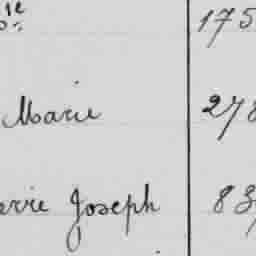 175
Marie 278
erre Joseph 83